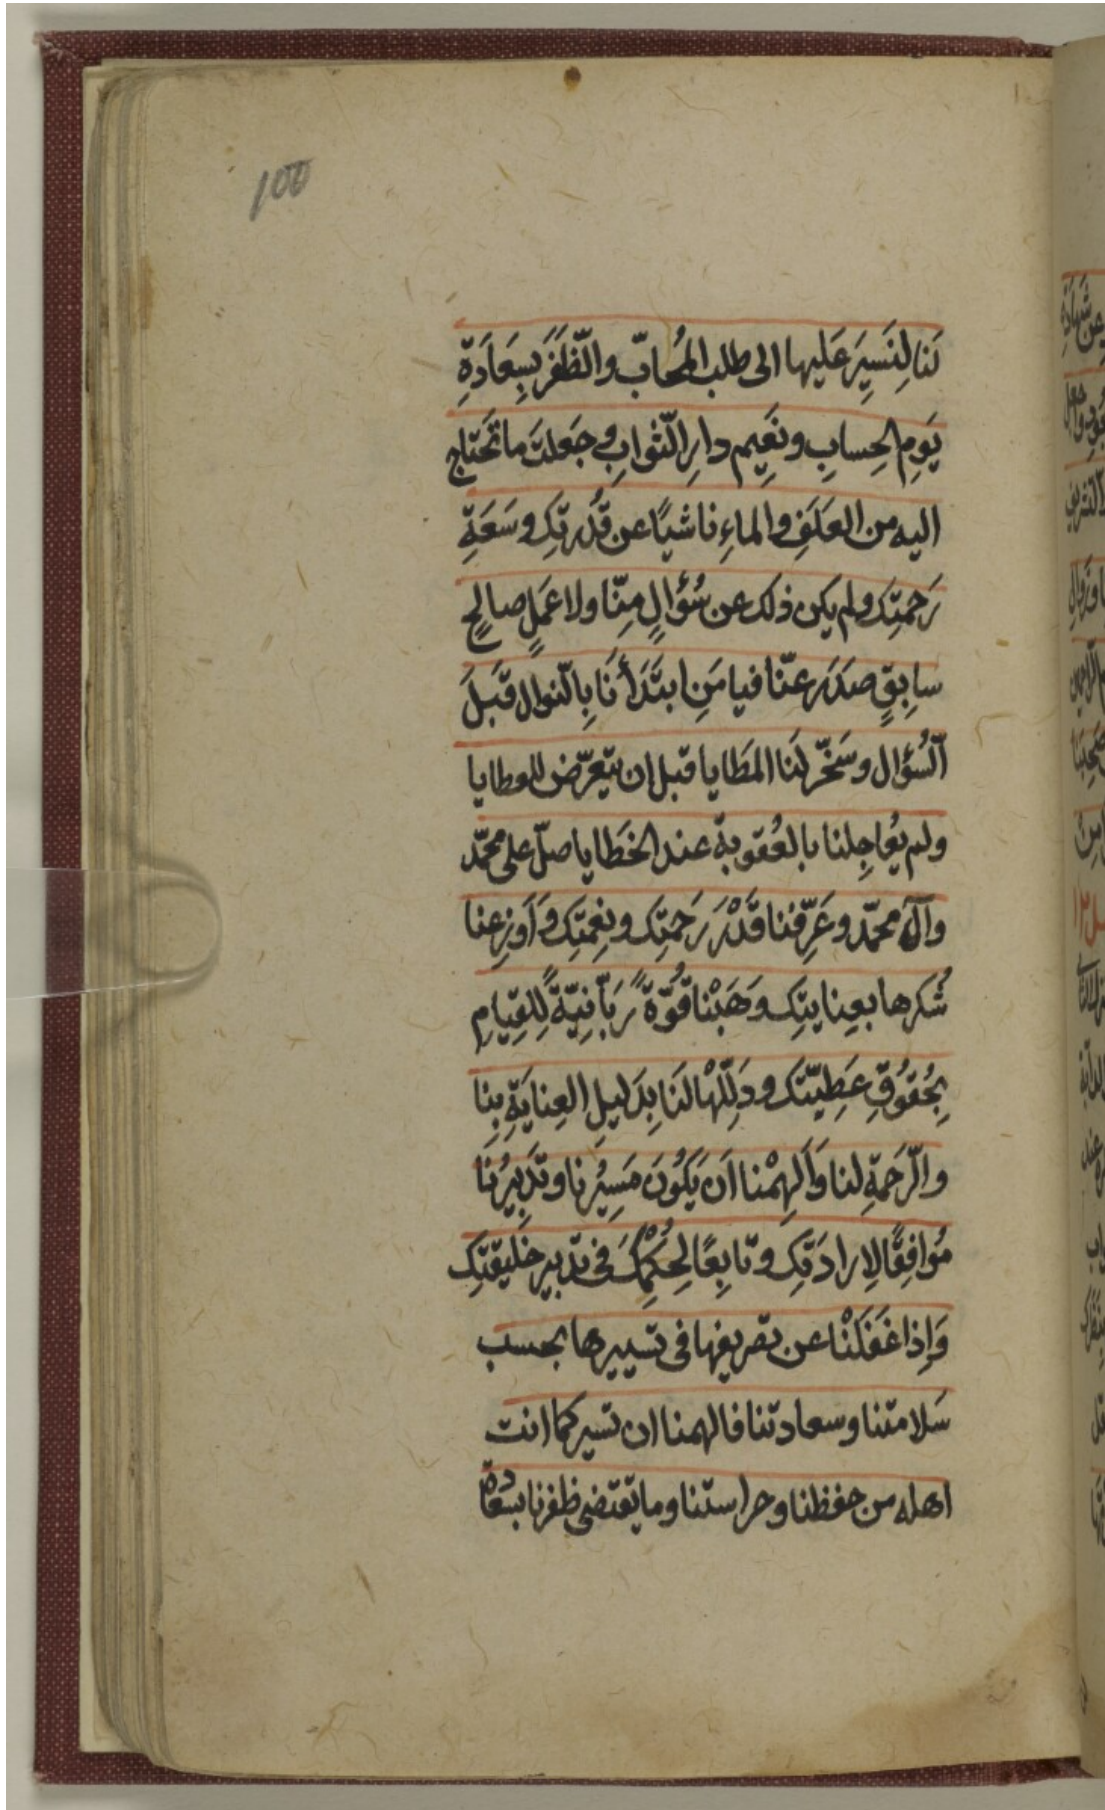 100
لَنا لِنَسِيرَ عَليها الى طلب المُحابّ والظَّفَرَ بِسَعَادَةِ
يَومِ الحِسابِ ونَعِيم دارِ الثّوابِ وجَعلتَ ما تَحتَاج
اليه من العَلَفِ والماءِ ناشيًا عن قُدرتِكِ وسَعَةِ
رَحمتِكَ ولم يكن ذلك عن سُؤالٍ مِنّا ولا عَمَلٍ صالحٍ
سابِقٍ صَدَرَ عنّا فيا مَنِ ابتَدَأَنَا بِالنّوال قَبلَ
السُّؤال وسَخّر لَنا المَطَايا قبل ان يتعرّض للعطايا
ولم يُعاجِلنا بالعُقوبة عند الخَطايا صلّ على محمّد
وآل محمّد وعَرِّفنا قَدْرَ رَحمتِك ونِعمتِك وَأَوزِعنا
شُكرها بعِنايتِك وَهَبْنا قُوّةً رَبّانِيّةً لِلقِيامِ
بِحُقُوقِ عَطِيّتك ودَلِّلْهَا لَنَا بِدَلِيلِ العِنايَةِ بِنا
والرَّحمَةِ لنا وَأَلهِمْنا اَن يَكُونَ مَسِيرُنا وتَدبِيرُنَا
مُوافِقًا لِارادَتِكِ وتابِعًا لِحُكمِكَ فى تدبير خليقتِكِ
وَاِذا غَفَلْنا عن تصريفها فى تسييرها بحسب
سَلامتنا وسعادتنا فالهمنا ان تسير كما انت
اهله من حفظنا وحراستنا وما يقتضى ظفرنا بسَعادة